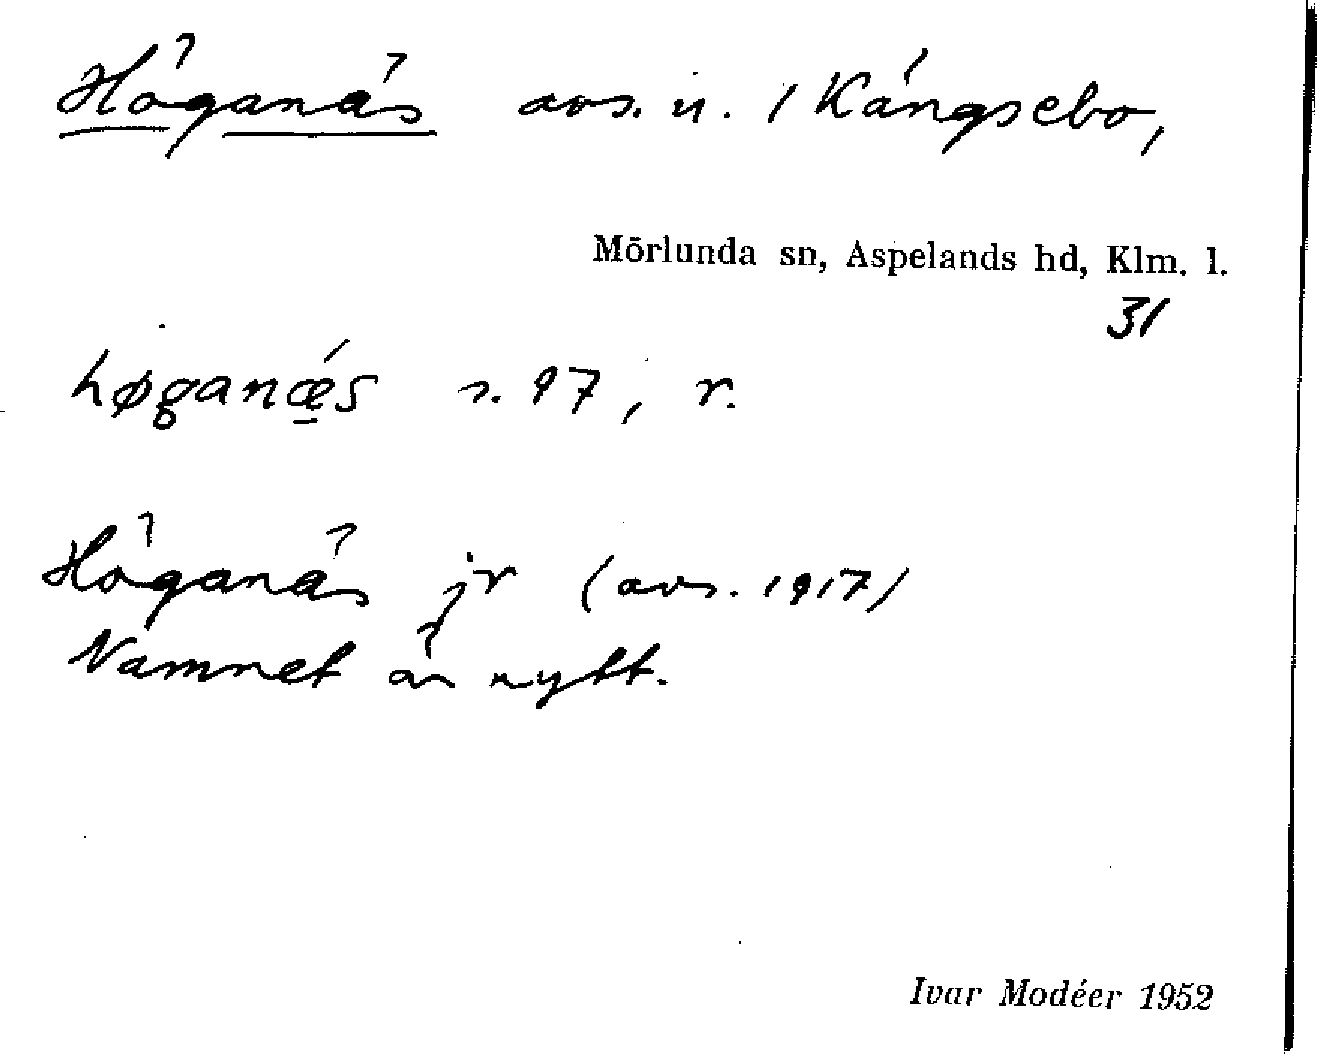 Höganäs avs. u. 1 Kängsebo,
Mörlunda sn, Aspelands hd, Klm. l.
31
høganǽ̱s s. 97, r.
Höganäs jr (avs. 1917)
Namnet är nytt.
Ivar Modéer 1952